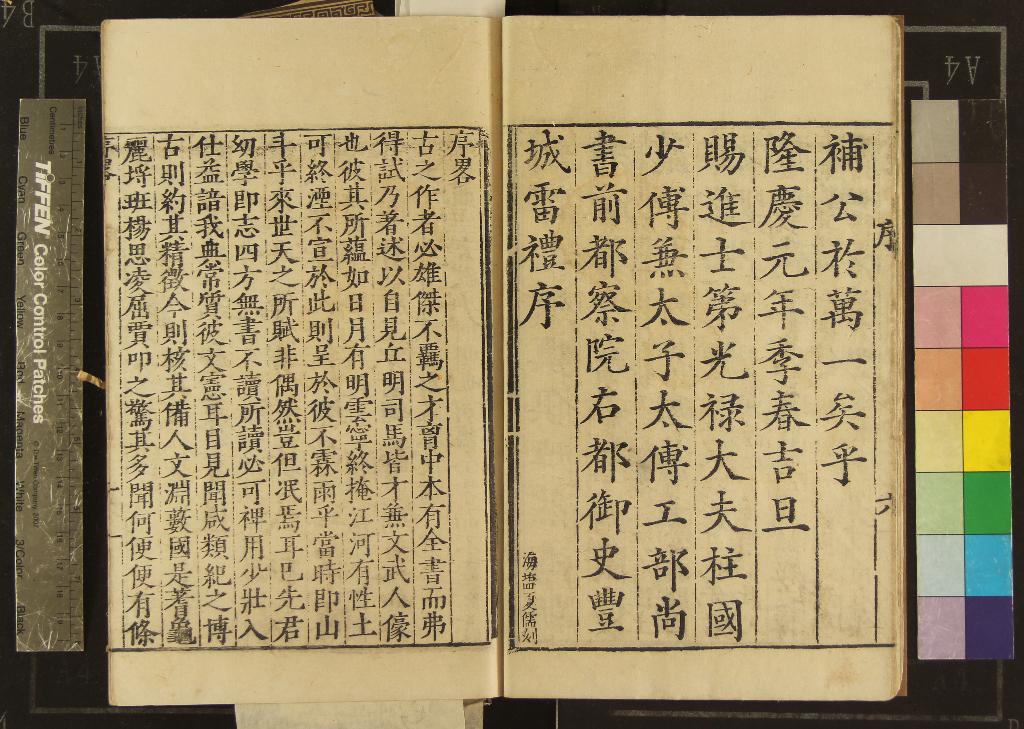 序
六
補公於萬一矣乎
隆慶元年季春吉旦
賜進士第光禄大夫柱國
少傅兼太子太傅工部尚
書前都察院右都御史豐
城雷禮序
海鹽夏儒刻
序畧
古之作者必雄傑不羈之才胷中本有全書而弗
得試乃著述以自見丘明司馬皆才兼文武人儫
也彼其所蘊如日月有明雲寧終掩江河有性土
可終湮不宣於此則呈於彼不霖雨乎當時即山
斗乎來世天之所賦非偶然豈但泯焉耳已先君
幼學即志四方無書不讀所讀必可裨用少壯入
仕益諳我典常質彼文憲耳目見聞咸類紀之博
古則約其精徵今則核其備人文淵藪國是蓍龜
麗埓班楊思凌屈賈叩之驚其多聞何便便有條
序畧
一
TIFFEN Color Control Patches
© The Tiffen Company, 2007
Centimetres
Inches
Blue
Cyan
Green
Yellow
Red
Magenta
White
3/Color
Black
A4
A4
B4
A4
A4